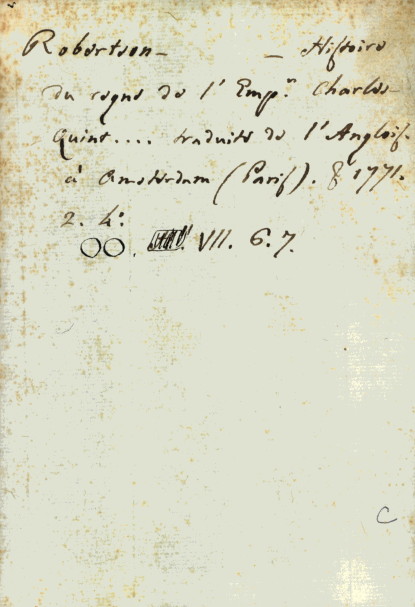 Robertson – – Histoire
du regne de l'Emp.r Charles-
Quint.... traduite de l'Anglois.
à Amsterdam (Paris). 1771.
2. 4.o
OO. VII. 6. 7.
C